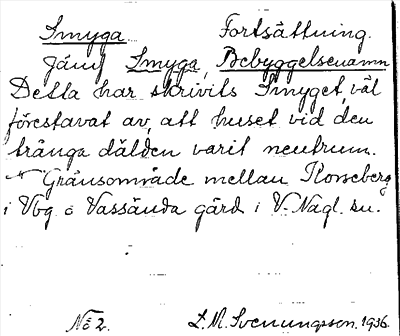 Smyga Fortsättning.
Jämf Smyga, Bebyggelsenamn
Detta har skrivits Smyget, väl
förestavat av, att huset vid den
trånga dälden varit neutrum.
Gränsområde mellan Korseberg
i Vbg o Vassända gård i V. Nagl. sn.
No 2. L. M. Svenungsson. 1936.